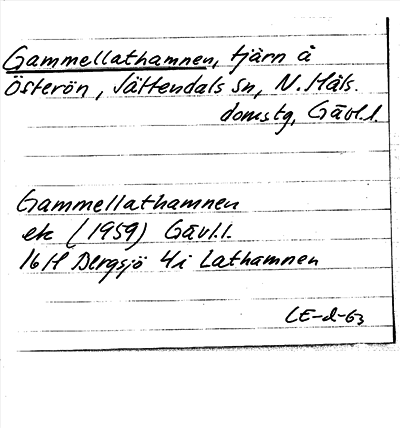 Gammellathamnen, tjärn å
Österön, Jättendals sn, N. Häls.
domstg, Gävl.l.
Gammellathamnen
ek (1959) Gävl.l.
16H Bergsjö 4i Lathamnen
CE-d-63